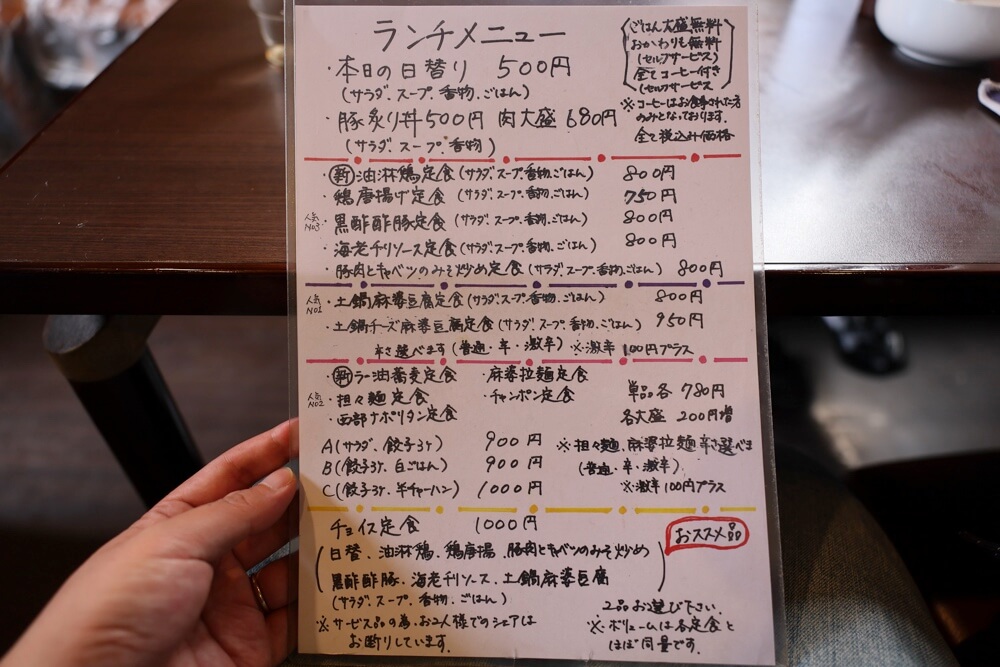 ランチメニュー
・本日の日替り 500円
(サラダ、スープ、香物、ごはん)
・豚炙り丼500円 肉大盛680円
(サラダ、スープ、香物)
ごはん大盛無料
おかわりも無料
(セルフサービス)
全てコーヒー付き
(セルフサービス
※コーヒーはお食事された方
のみとなっております。
全て税込み価格
・新油淋鶏定食(サラダ、スープ、香物、ごはん) 800円
・鶏唐揚げ定食(サラダ、スープ、香物、ごはん) 750円
人気No3 ・黒酢酢豚定食(サラダ、スープ、香物、ごはん) 800円
・海老チリソース定食(サラダ、スープ、香物、ごはん) 800円
・豚肉とキャベツのみそ炒め定食(サラダ、スープ、香物、ごはん) 800円
人気No1 ・土鍋麻婆豆腐定食(サラダ、スープ、香物、ごはん) 800円
・土鍋チーズ麻婆豆腐定食(サラダ、スープ、香物、ごはん) 950円
辛さ選べます(普通・辛・激辛) ※激辛 100円プラス
・新ラー油蕎麦定食 ・麻婆拉麺定食
人気No2 ・担々麺定食 ・チャンポン定食
・西部ナポリタン定食
単品各 780円
各大盛 200円増
A(サラダ、餃子3ヶ) 900円
B(餃子3ヶ、白ごはん) 900円
C(餃子3ヶ、半チャーハン) 1000円
※担々麺、麻婆拉麺辛さ選べま
(普通・辛・激辛)
※激辛 100円プラス
チョイス定食 1000円
おススメ品
(日替、油淋鶏、鶏唐揚、豚肉とキャベツのみそ炒め
黒酢酢豚、海老チリソース、土鍋麻婆豆腐)
(サラダ、スープ、香物、ごはん)
※サービス品の為、お2人様でのシェアは
お断りしています。
2品お選び下さい。
※ボリュームは各定食と
ほぼ同量です。